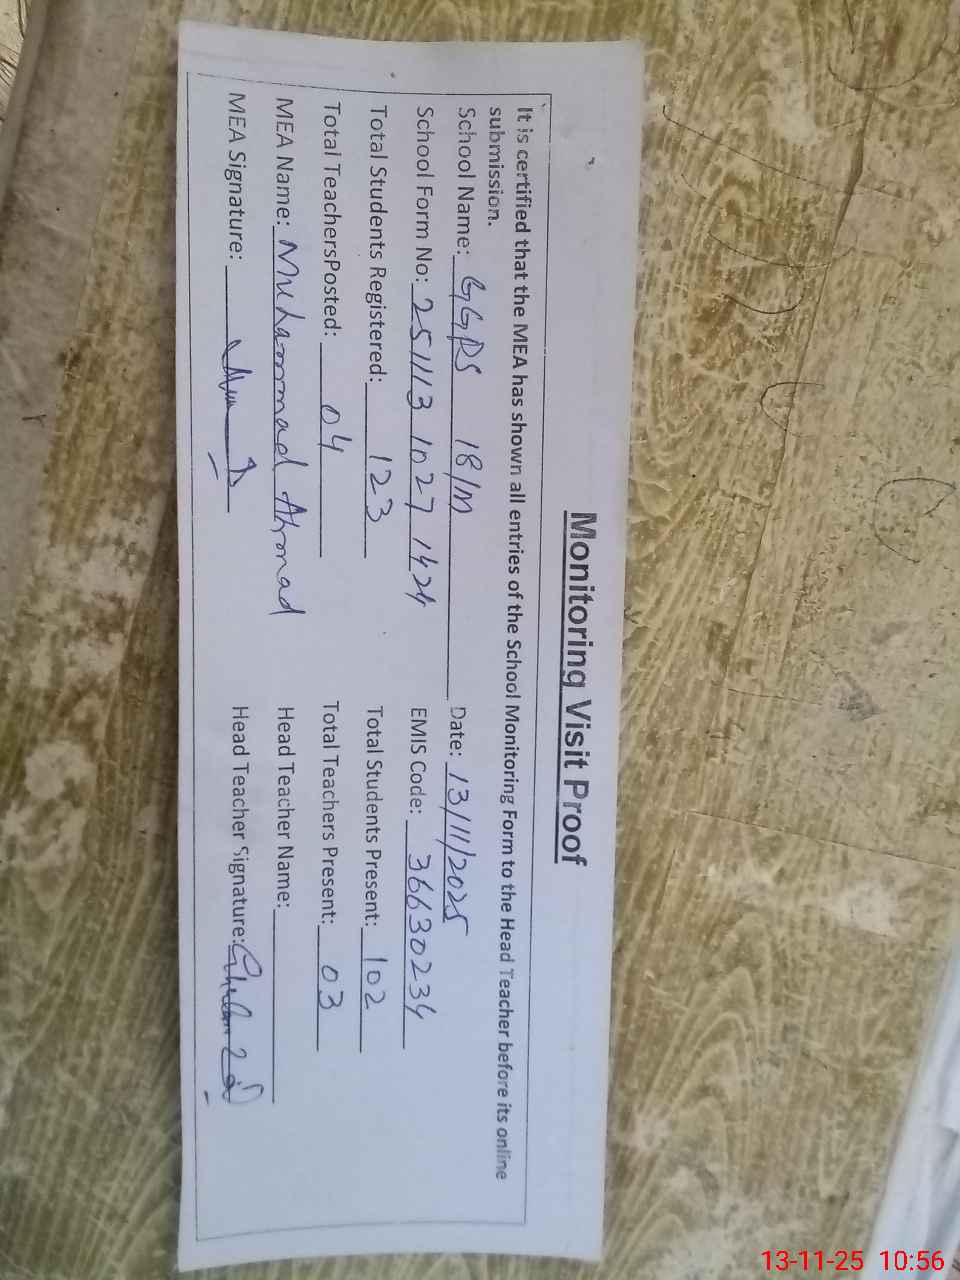 Monitoring Visit Proof
It is certified that the MEA has shown all entries of the School Monitoring Form to the Head Teacher before its online
submission.
School Name: GGPS 18/M Date: 13/11/2025
School Form No: 251113 1027 1424 EMIS Code: 36630234
Total Students Registered: 123 Total Students Present: 102
Total TeachersPosted: 04 Total Teachers Present: 03
MEA Name: Muhammad Ahmad Head Teacher Name:
MEA Signature: Head Teacher Signature:
13-11-25 10:56